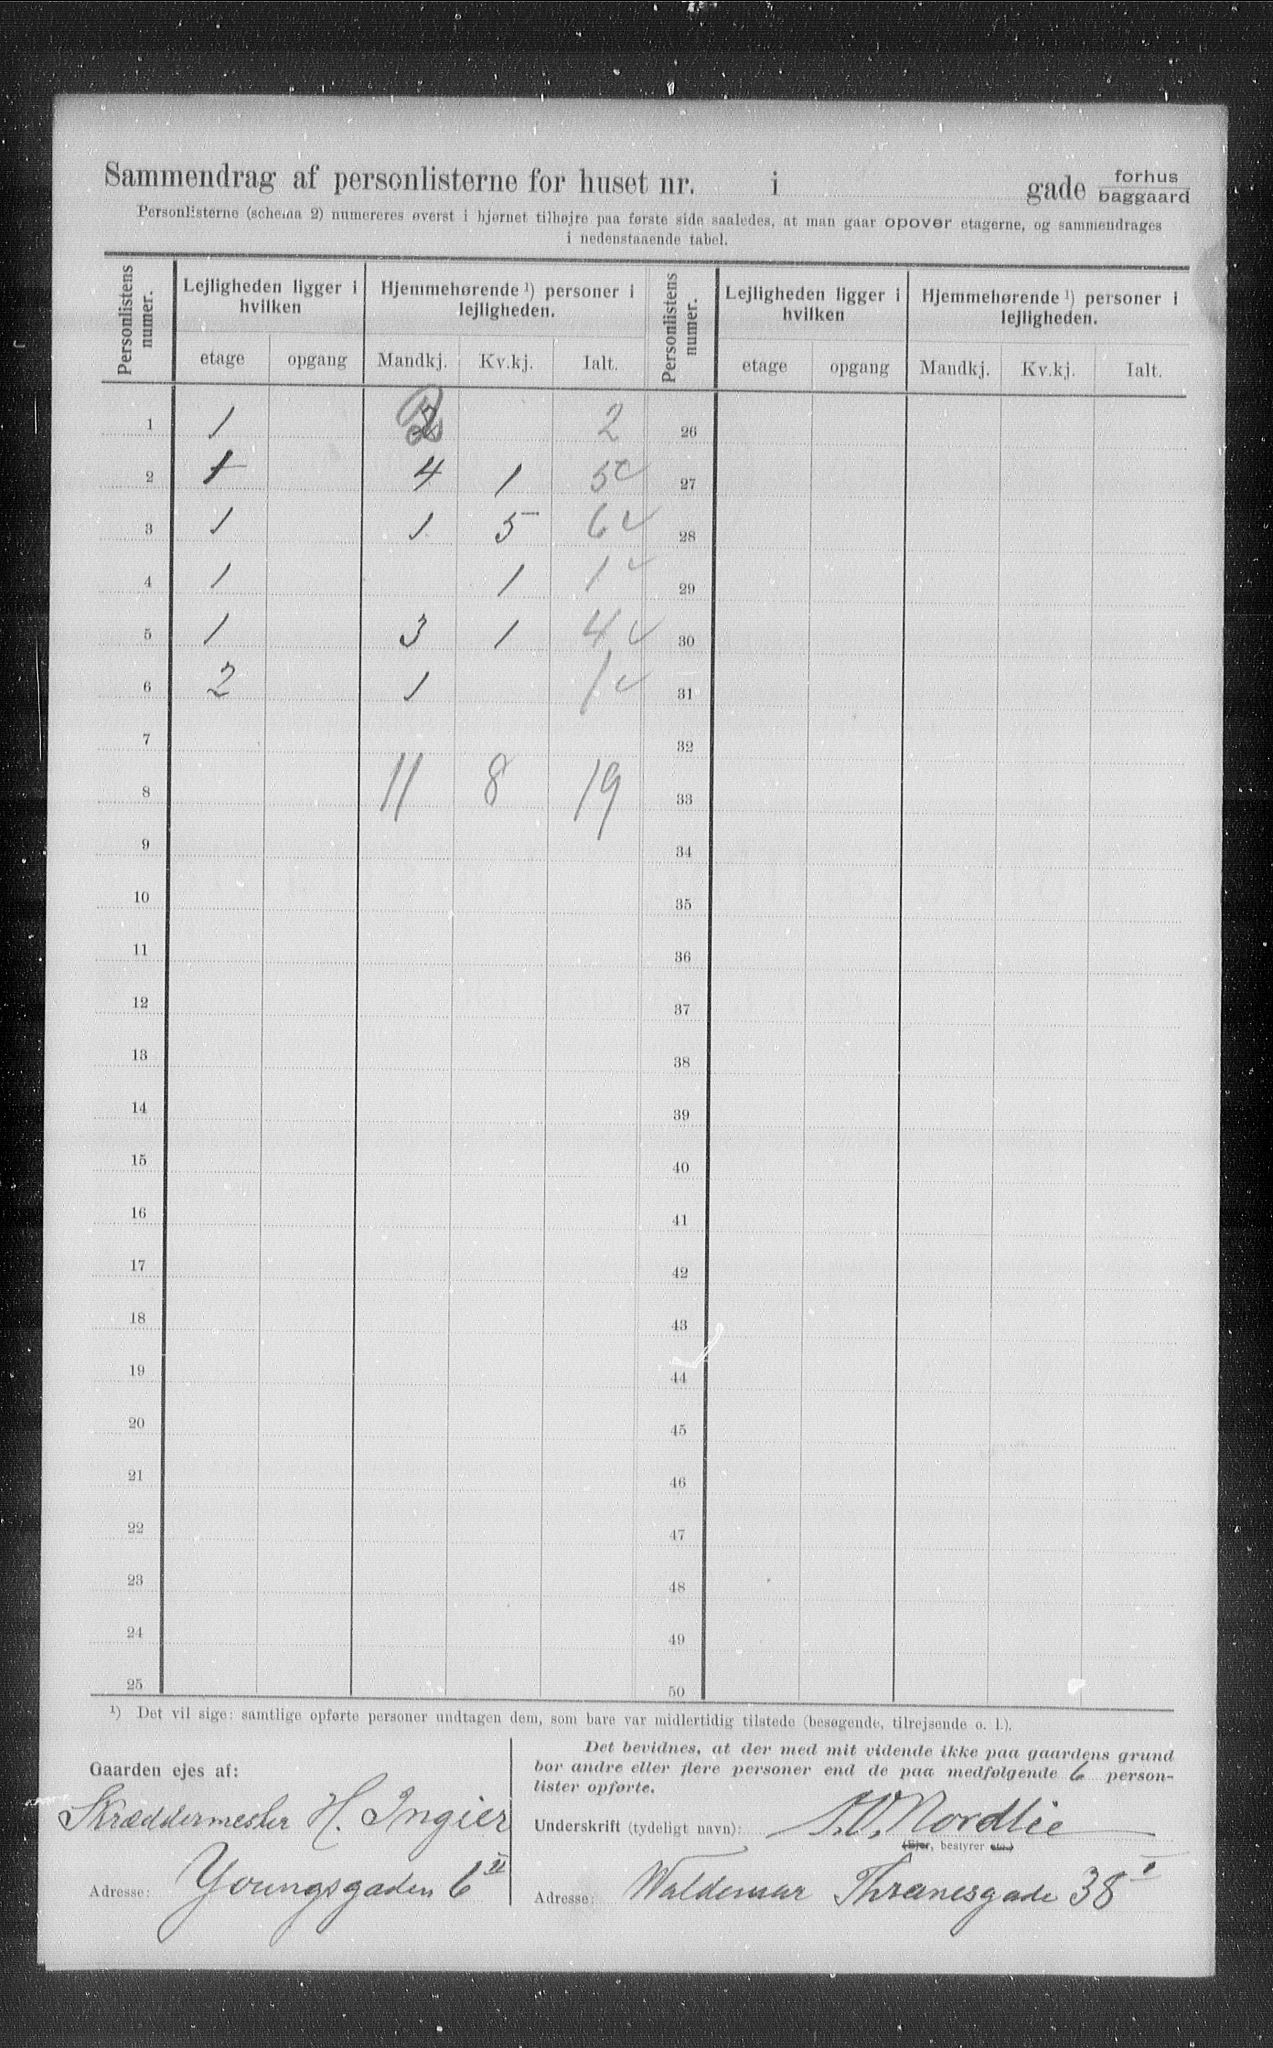 Sammendrag af personlisterne for huset nr. i gade forhus
baggaard
Personlisterne (schema 2) numereres øverst i hjørnet tilhøjre paa første side saaledes, at man gaar opover etagerne, og sammendrages
i nedenstaaende tabel.
Personlistens numer. Lejligheden ligger i hvilken Hjemmehørende ¹) personer i lejligheden. Personlistens numer. Lejligheden ligger i hvilken Hjemmehørende ¹) personer i lejligheden.
etage opgang Mandkj. Kv.kj. Ialt. etage opgang Mandkj. Kv.kj. Ialt.
1 1 2 2 26
2 1 4 1 5 ✓ 27
3 1 1 5 6 ✓ 28
4 1 1 1 ✓ 29
5 1 3 1 4 ✓ 30
6 2 1 1 ✓ 31
7 32
8 11 8 19 33
9 34
10 35
11 36
12 37
13 38
14 39
15 40
16 41
17 42
18 43
19 44
20 45
21 46
22 47
23 48
24 49
25 50
¹) Det vil sige: samtlige opførte personer undtagen dem, som bare var midlertidig tilstede (besøgende, tilrejsende o. l.).
Gaarden ejes af:
Skræddermester H. Ingier
Adresse: Youngsgaden 6 II
Det bevidnes, at der med mit vidende ikke paa gaardens grund
bor andre eller flere personer end de paa medfølgende 6 person-
lister opførte.
Underskrift (tydeligt navn): Nordlie
(Ejer, bestyrer etc.)
Adresse: Waldemar Thranesgade 38 I